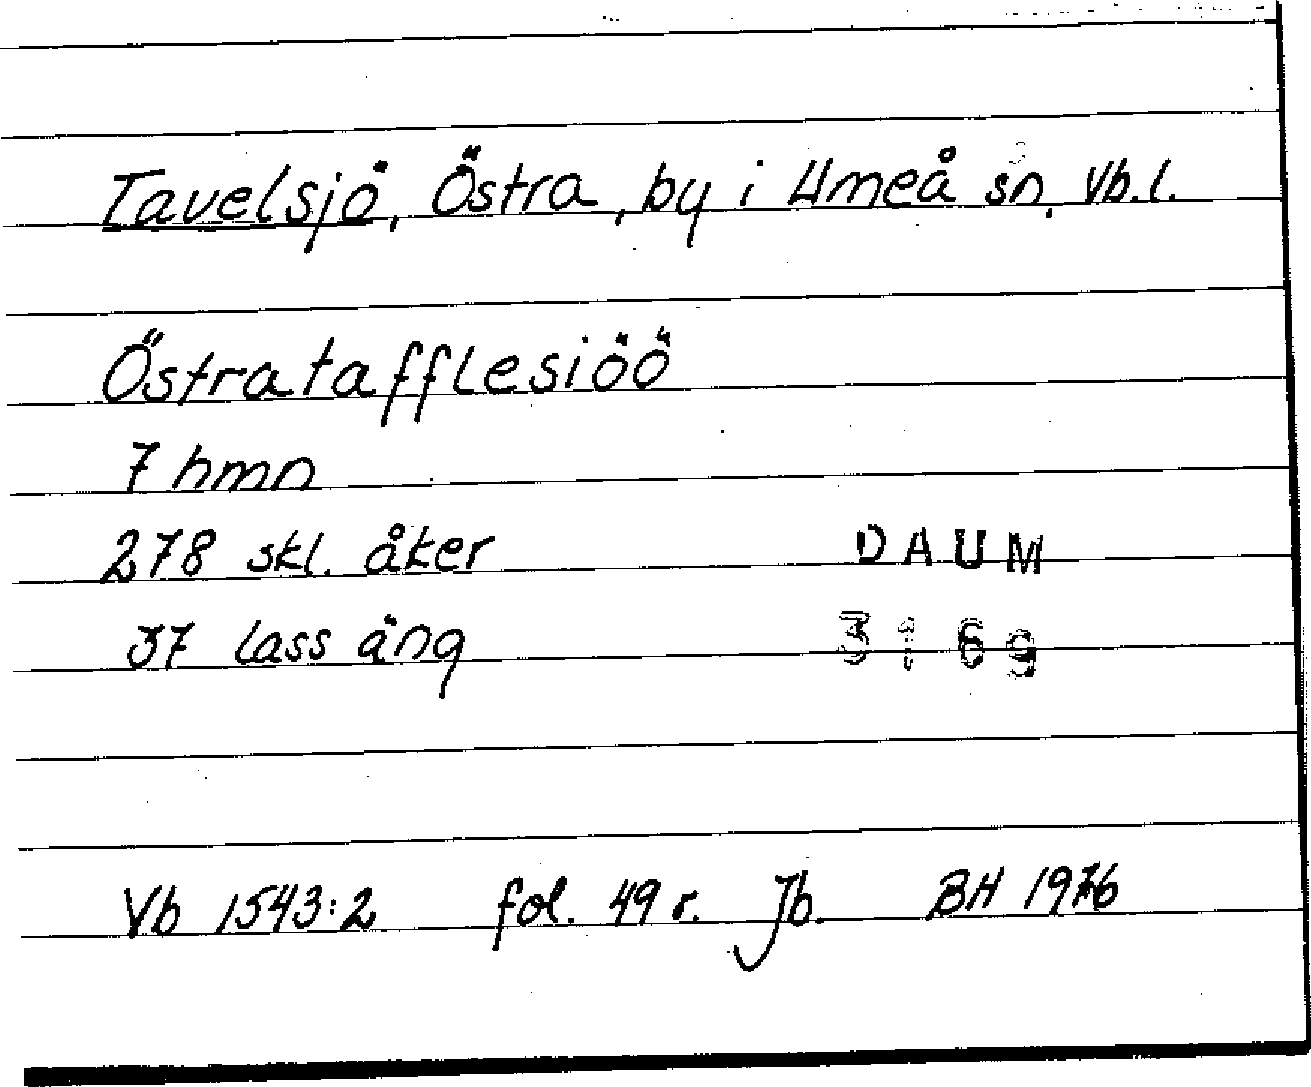 Tavelsjö, Östra, by i Umeå sn, Vb.l.
Östratafflesiöö
7 hmn
278 skl. åker
DAUM
37 lass äng
3169
Vb 1543:2 fol. 49 r. Jb. BH 1976